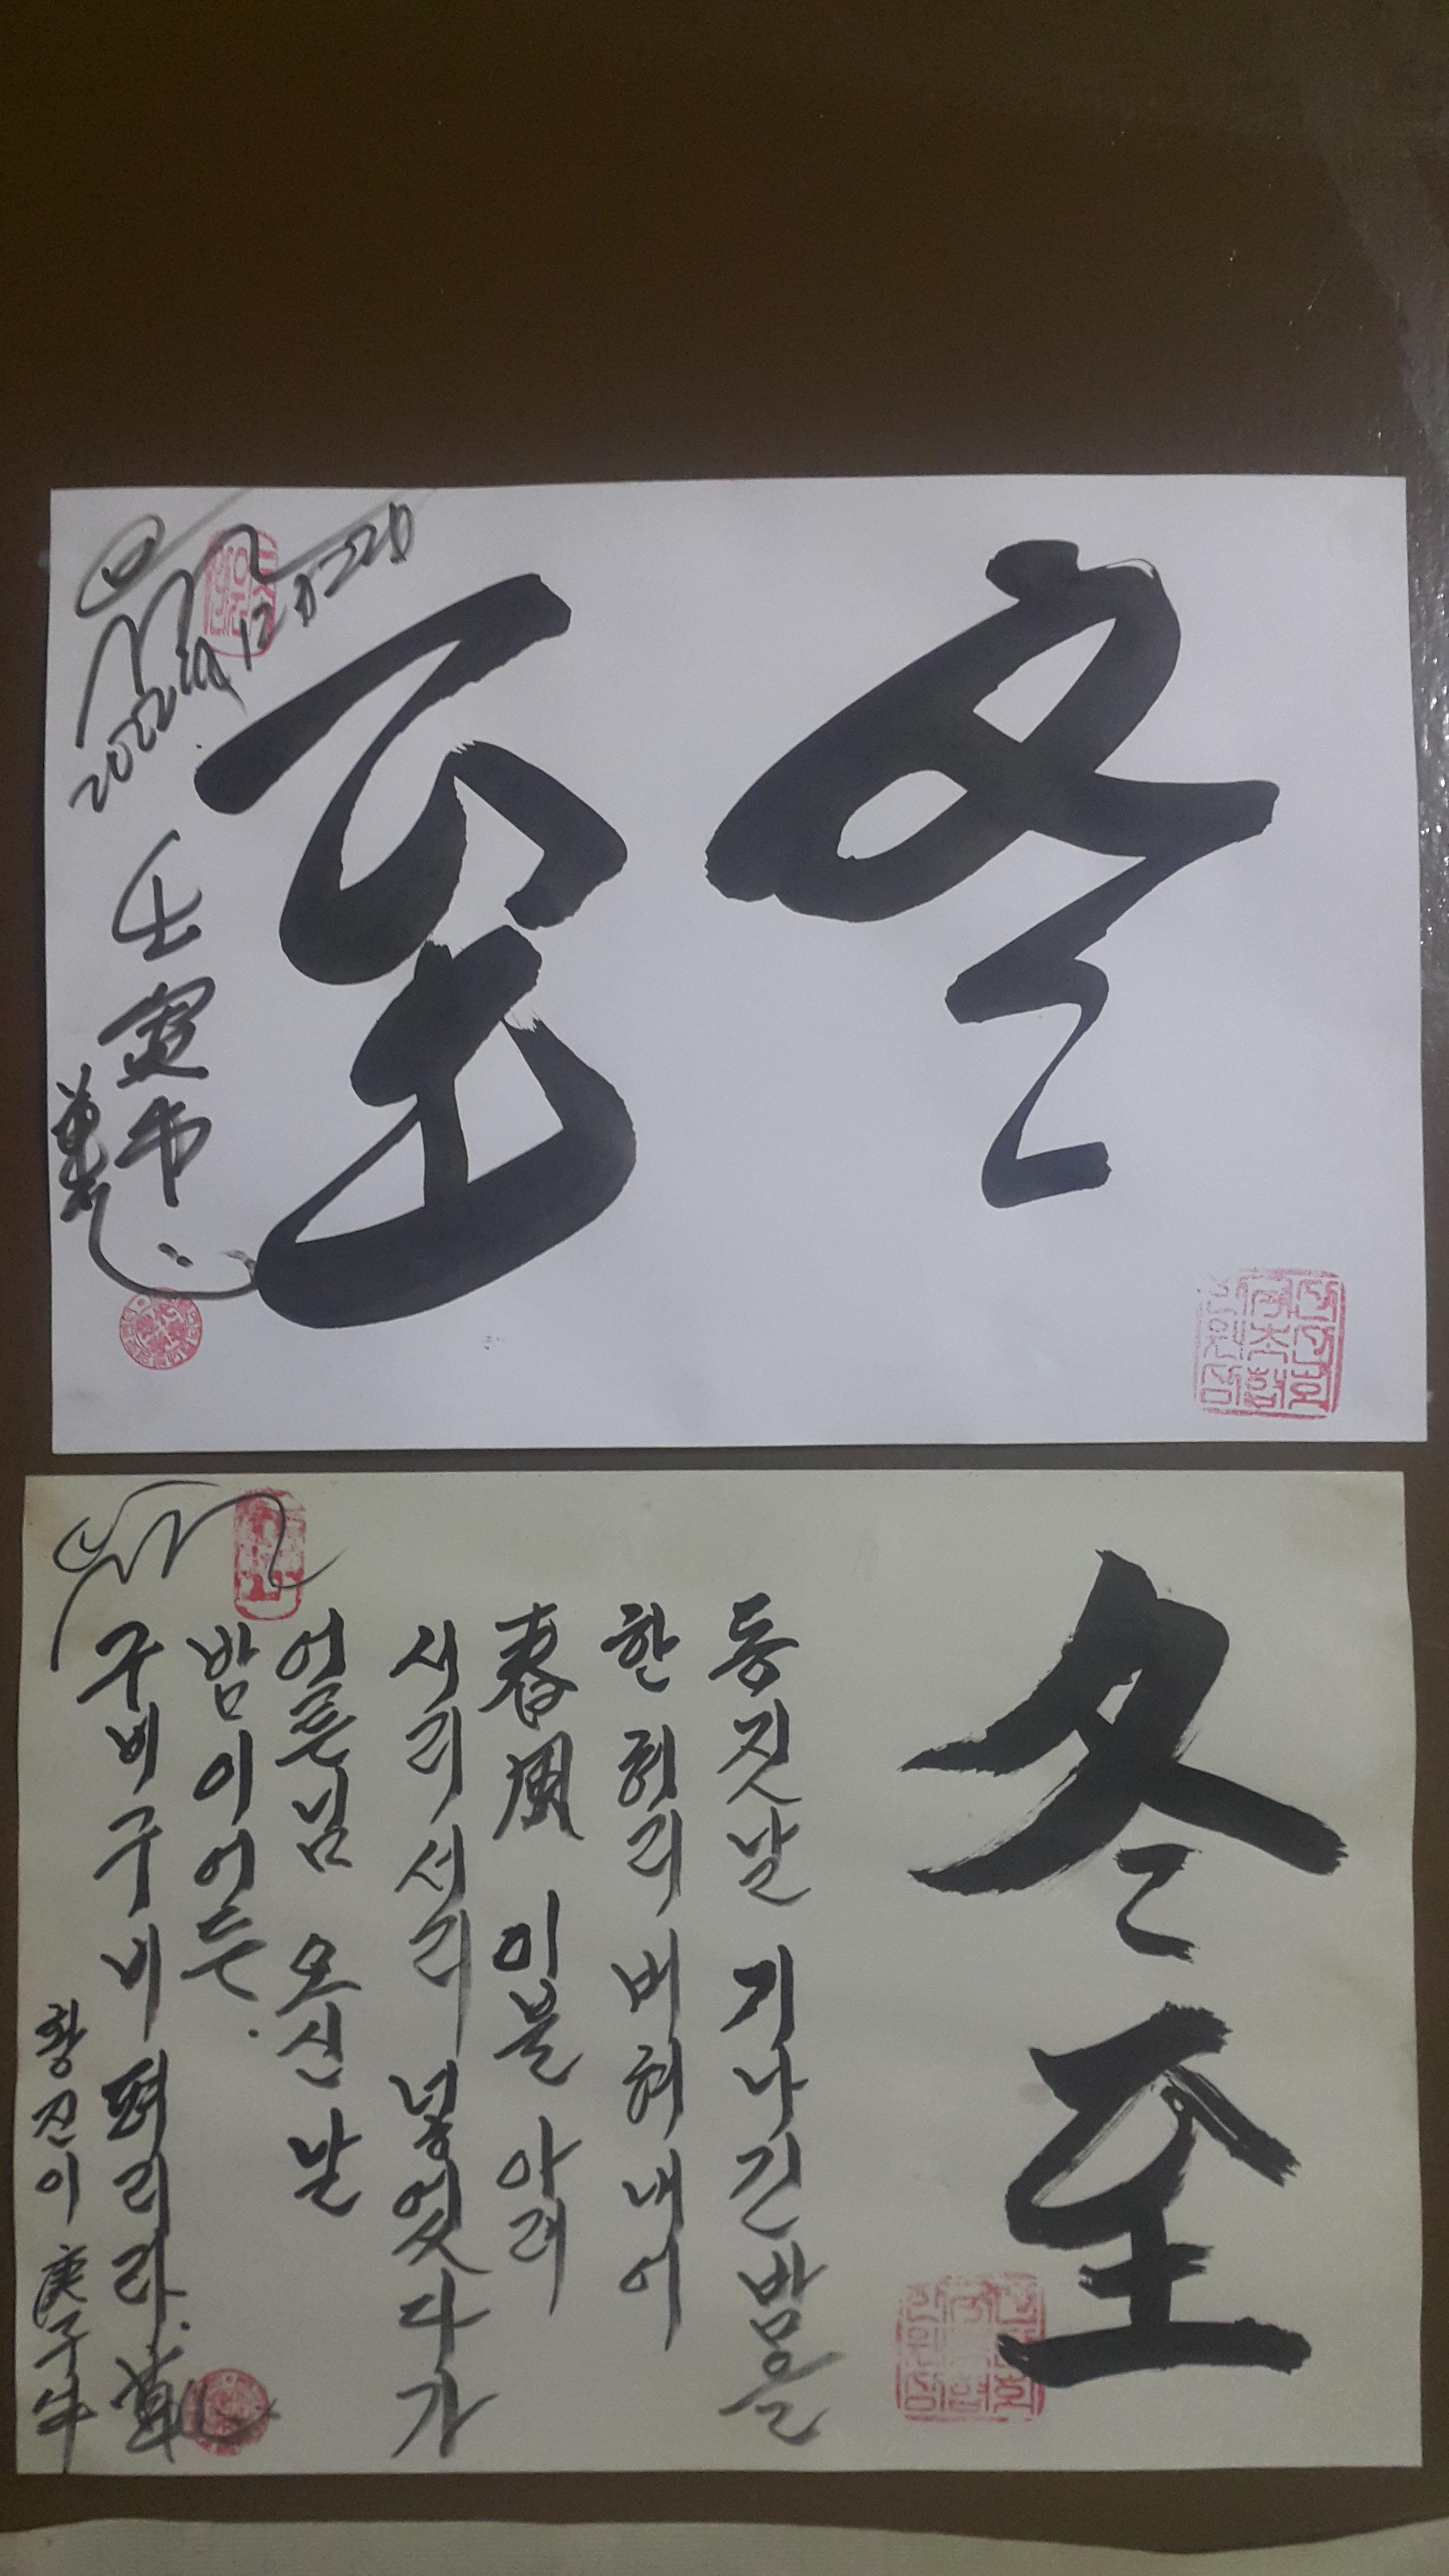 冬
至
2022년 12月 22日
壬寅年
冬至
동짓날 기나긴 밤을
한 허리 버혀 내어
春風 이불 아래
서리서리 넣었다가
어른님 오신 날
밤이어든.
구비구비 펴리라.
황진이 庚子年